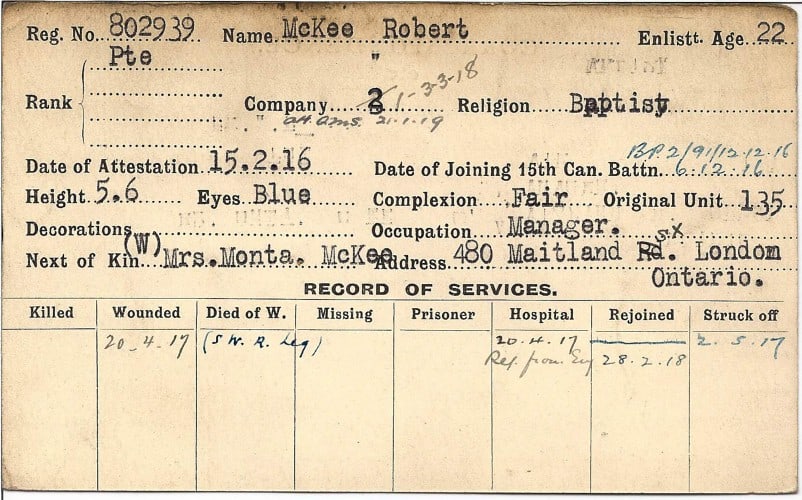 Reg. No. 802939 Name McKee Robert Enlistt. Age 22
Pte "
Rank Company 2 1-3-3-18 Religion Baptist
att. 21.1.19
BP.2/91/12.12.16
Date of Attestation 15.2.16 Date of Joining 15th Can. Battn. 6.12.16
Height 5.6 Eyes Blue Complexion Fair Original Unit 135
Decorations Occupation Manager.
Next of Kin (W) Mrs.Monta. McKee Address 480 Maitland Rd. St London
Ontario.
RECORD OF SERVICES.
Killed Wounded Died of W. Missing Prisoner Hospital Rejoined Struck off
20-4-17 (S W. R. Leg) 20.4.17 2.5.17
Rej. from Eng 28.2.18